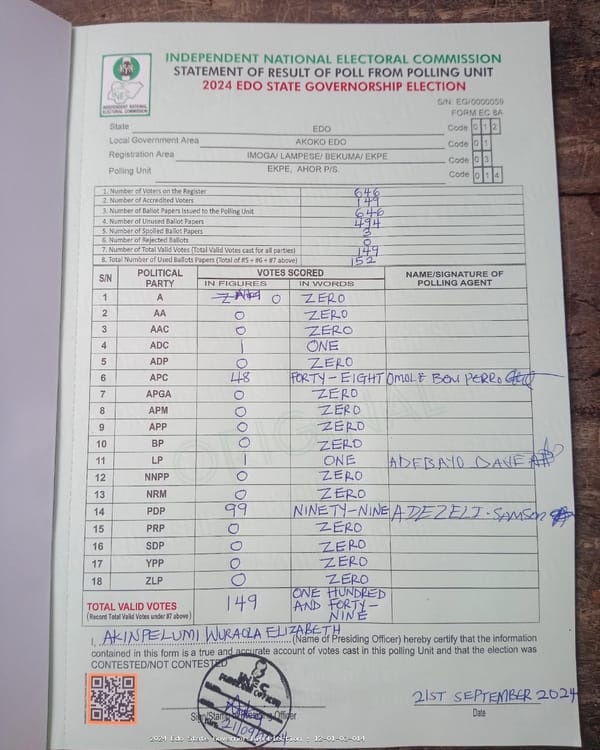 INDEPENDENT NATIONAL ELECTORAL COMMISSION
STATEMENT OF RESULT OF POLL FROM POLLING UNIT
2024 EDO STATE GOVERNORSHIP ELECTION
INDEPENDENT NATIONAL
ELECTORAL COMMISSION
S/N: EG/0000059
FORM EC 8A
State EDO Code 0 1 2
Local Government Area AKOKO EDO Code 0 1
Registration Area IMOGA/ LAMPESE/ BEKUMA/ EKPE Code 0 3
Polling Unit EKPE, AHOR P/S. Code 0 1 4
1. Number of Voters on the Register 646
2. Number of Accredited Voters 149
3. Number of Ballot Papers Issued to the Polling Unit 646
4. Number of Unused Ballot Papers 494
5. Number of Spoiled Ballot Papers 3
6. Number of Rejected Ballots 0
7. Number of Total Valid Votes (Total Valid Votes cast for all parties) 149
8. Total Number of Used Ballots Papers (Total of #5 + #6 + #7 above) 152
S/N POLITICAL PARTY VOTES SCORED NAME/SIGNATURE OF POLLING AGENT
IN FIGURES IN WORDS
1 A 0 ZERO
2 AA 0 ZERO
3 AAC 0 ZERO
4 ADC 1 ONE
5 ADP 0 ZERO
6 APC 48 FORTY-EIGHT OMOLE BEN PERRO
7 APGA 0 ZERO
8 APM 0 ZERO
9 APP 0 ZERO
10 BP 0 ZERO
11 LP 1 ONE ADEBAYO DAVE
12 NNPP 0 ZERO
13 NRM 0 ZERO
14 PDP 99 NINETY-NINE ADEZELI. SAMSON
15 PRP 0 ZERO
16 SDP 0 ZERO
17 YPP 0 ZERO
18 ZLP 0 ZERO
ORIGINAL
TOTAL VALID VOTES 149 ONE HUNDRED AND FORTY-NINE
(Record Total Valid Votes under #7 above)
I, AKINPELUMI WURAOLA ELIZABETH (Name of Presiding Officer) hereby certify that the information
contained in this form is a true and accurate account of votes cast in this polling Unit and that the election was
CONTESTED/NOT CONTESTED
INEC
PRESIDING OFFICER
21ST SEPTEMBER 2024
Sign/Stamp Officer Date
2024 Edo State Governorship Election - 12-01-03-014